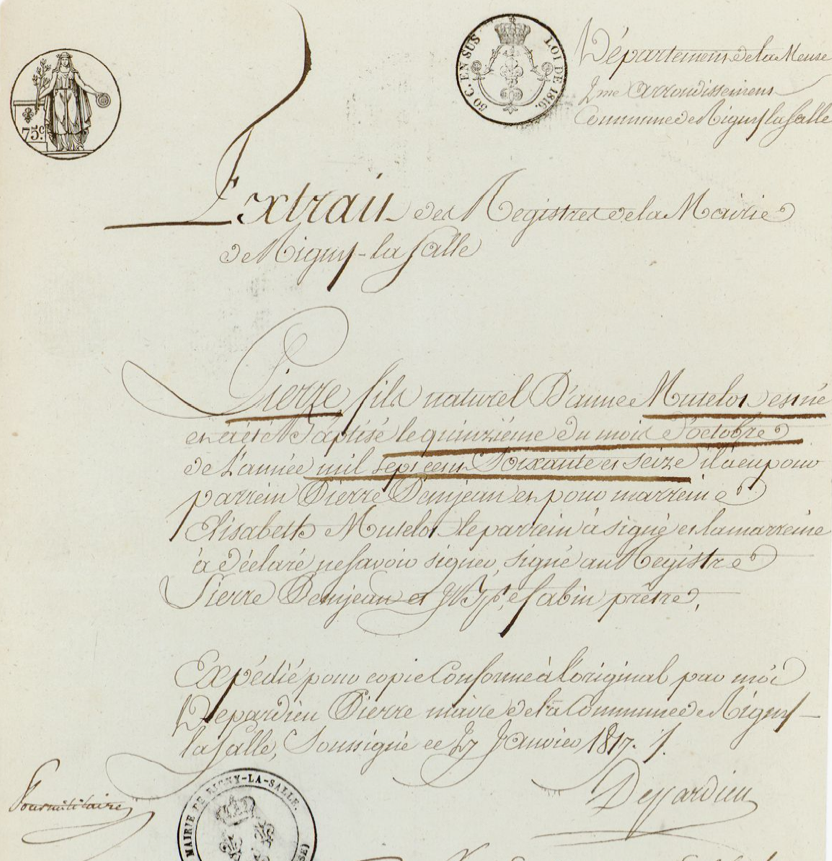 75c
50 C. EN SUS LOI DE 1816.
Département de la Meuse
2me arrondissement
Commune de Rigny la Salle
Extrait des Registres de la Mairie
de Rigny-la Salle
Pierre fils naturel D'anne Mutelot est né
et a été Baptisé le quinzième du mois d'octobre
de L'année mil sept cent Soixante et seize il a eu pour
parrein Pierre Demjean et pour marreine
Elisabeth Mutelot le parrein à signé et la marreine
à déclaré ne savoir signer, signé au Registre
Pierre Demjean et prêtre,
Expédié pour copie Conforme à l'original par moi
Depardieu Pierre maire de la Commune de Rigny-
la Salle, Soussigné ce 27 Janvier 1817.
Depardieu
Pour militaire
MAIRIE DE RIGNY-LA-SALLE.